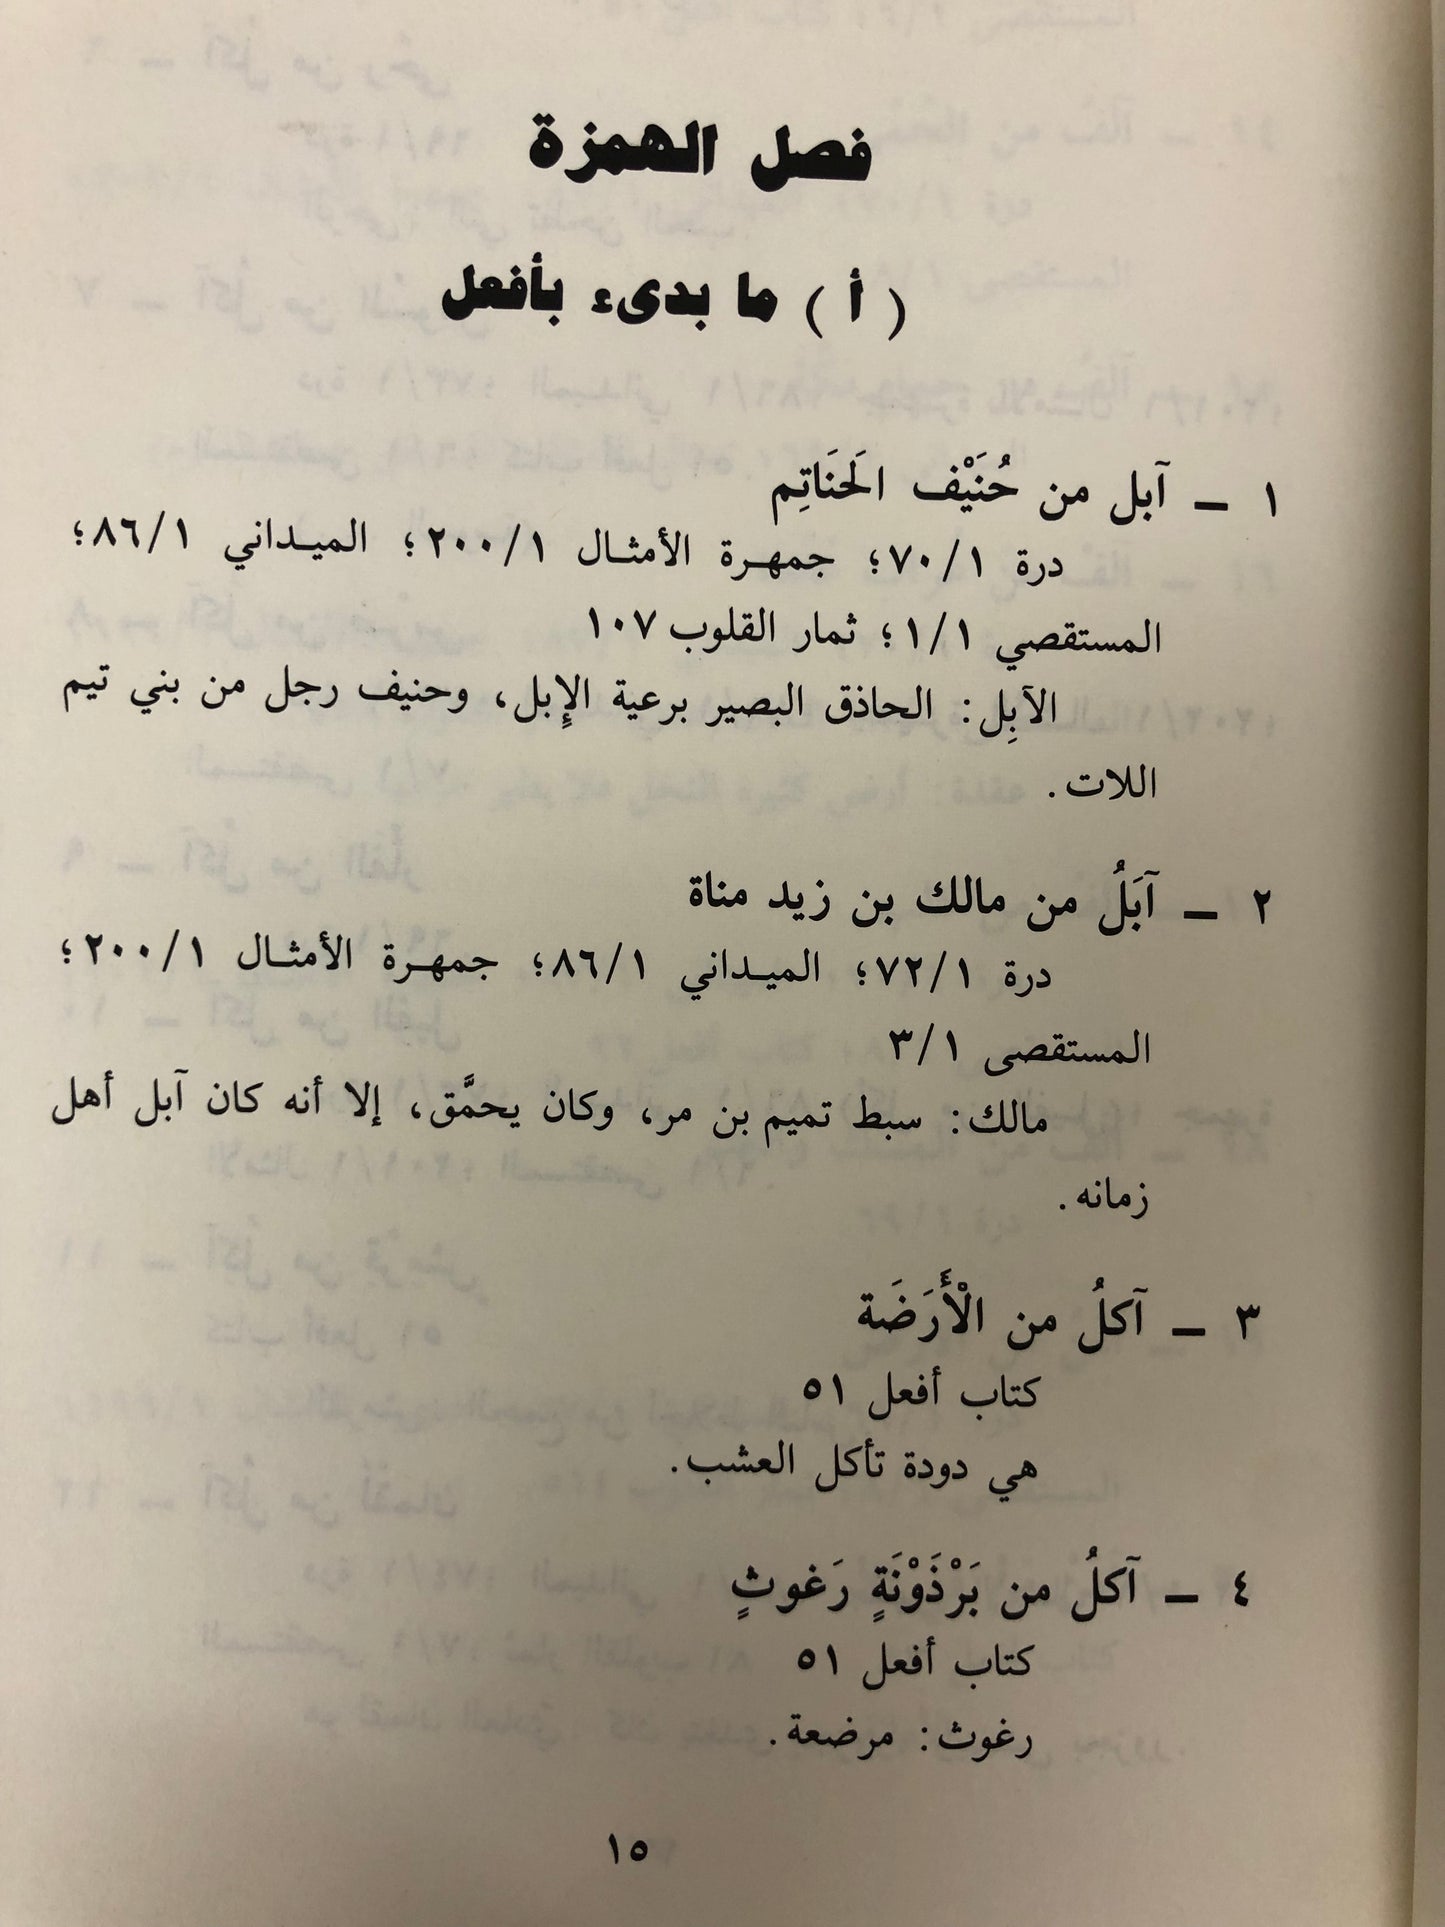 فصل الهمزة
( أ ) ما بدىء بأفعل
١ ــ آبل من حُنَيْف الَحنَاتِم
درة ٧٠/١؛ جمهرة الأمثال ٢٠٠/١؛ الميداني ٨٦/١؛
المستقصي ١/١؛ ثمار القلوب ١٠٧
الآبِل: الحاذق البصير برعية الإِبل، وحنيف رجل من بني تيم
اللات.
٢ ــ آبَلُ من مالك بن زيد مناة
درة ٧٢/١؛ الميداني ٨٦/١؛ جمهرة الأمثال ٢٠٠/١؛
المستقصى ٣/١
مالك: سبط تميم بن مر، وكان يحمَّق، إلا أنه كان آبل أهل
زمانه.
٣ ــ آكلُ من الْأَرَضَة
كتاب أفعل ٥١
هي دودة تأكل العشب.
٤ ــ آكلُ من بَرْذَوْنَةٍ رَغوثٍ
كتاب أفعل ٥١
رغوث: مرضعة.
١٥